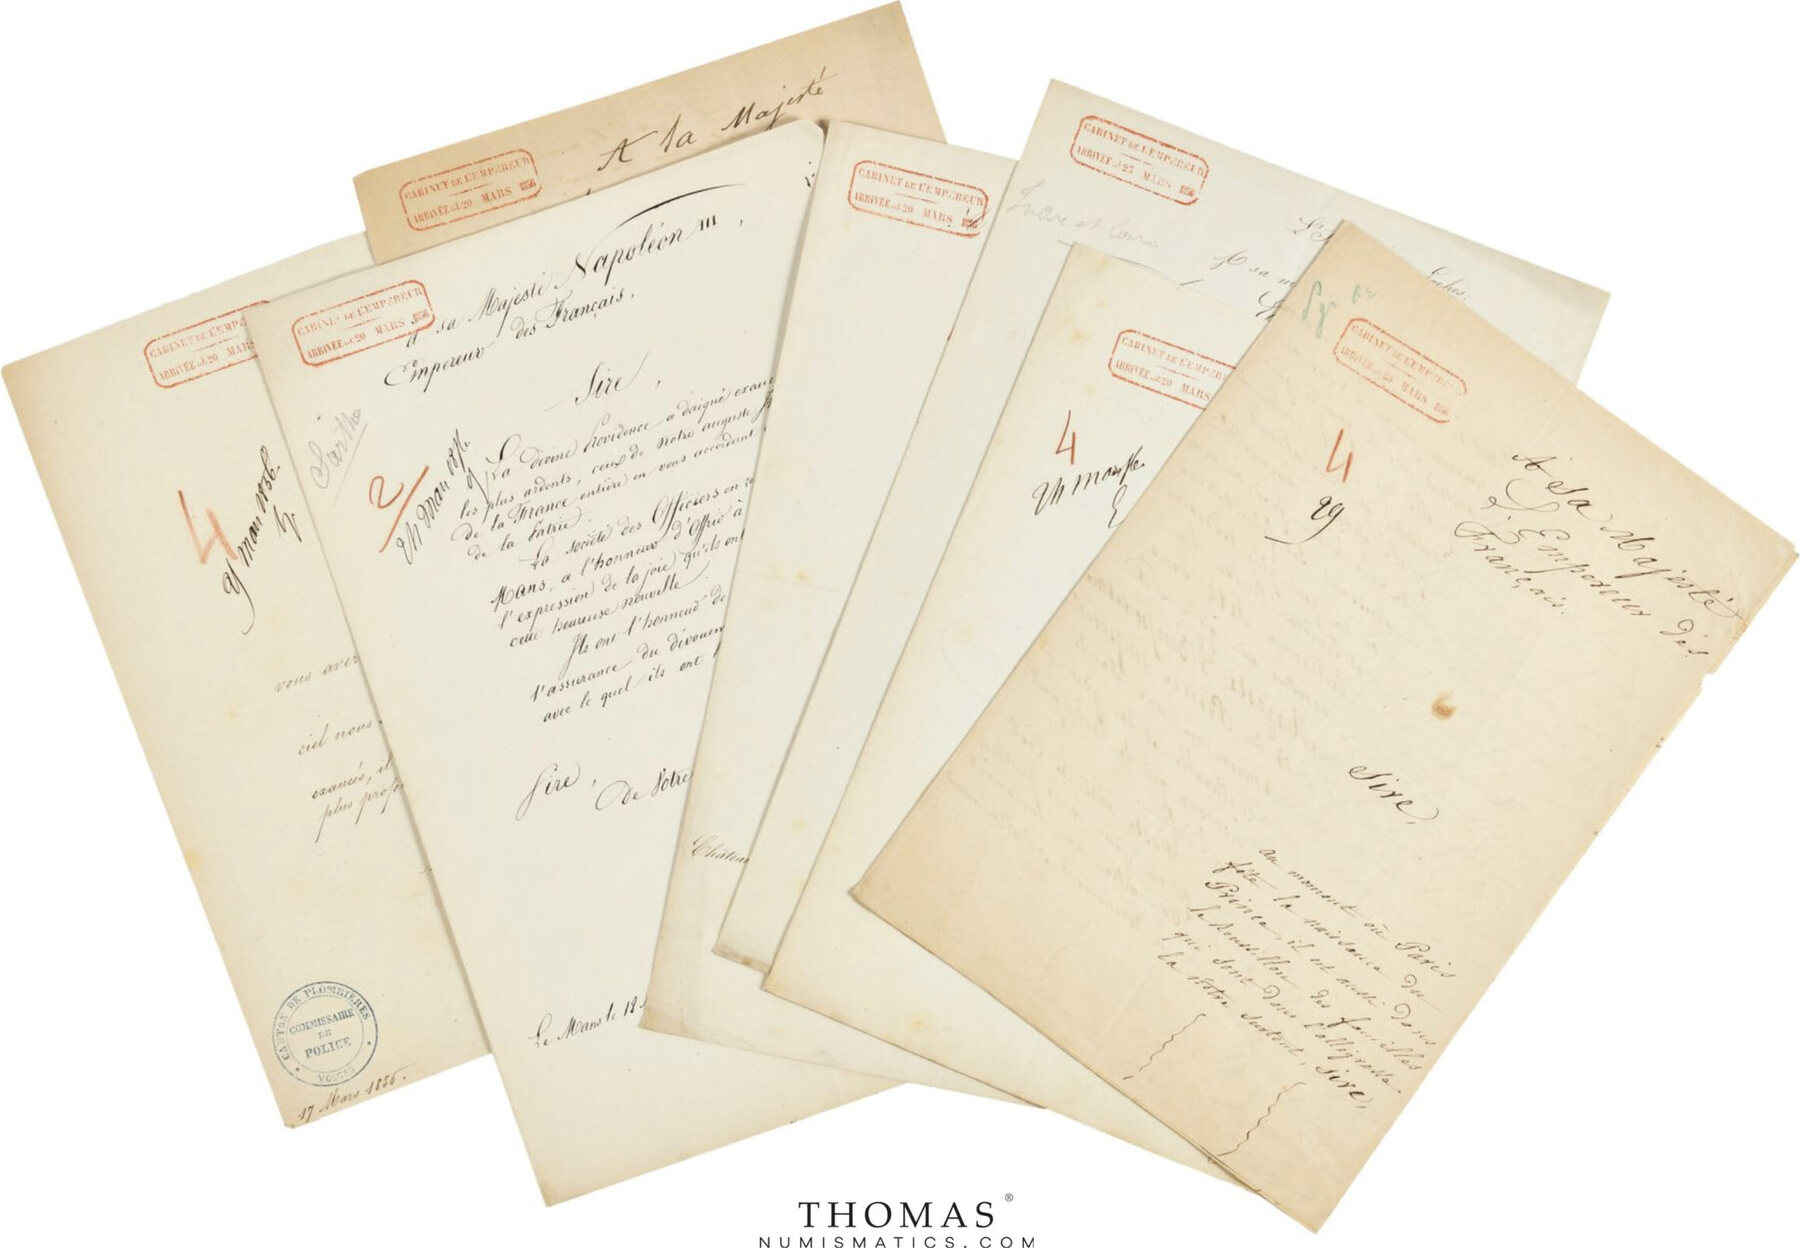 A la Majesté
CABINET DE L'EMPEREUR
ARRIVÉE LE 20 MARS 1856
CABINET DE L'EMP
ARRIVÉE LE 20 MAR
4
9 mars 1856
vous aver
ciel nous
exaucés, il
plus profo
CANTON DE PLOMBIERES
COMMISSAIRE
DE
POLICE
VOSGES
17 Mars 1856.
CABINET DE L'EMPEREUR
ARRIVÉE LE 20 MARS 1856
A sa Majesté Napoléon III,
Empereur des Français.
Sarthe
Sire,
2
La divine Providence a daigné exau
les plus ardents, ceux de notre auguste
de la France entière en vous accordant
de la Patrie.
La société des Officiers en re
Mans, a l'honneur d'offrir à
l'expression de la joie qu'ils ont
cette heureuse nouvelle.
Ils ont l'honneur de
l'assurance du dévouem
avec le quel ils ont
Sire,
De Votre
Le Mans le 18
CABINET DE L'EMPEREUR
ARRIVÉE LE 20 MARS 1856
Château
CABINET DE L'EMPEREUR
ARRIVÉE LE 25 MARS 1856
Indre et Loire
A sa m
Loches.
CABINET DE L'EMPER
ARRIVÉE LE 20 MARS
4
CABINET DE L'EMPEREUR
ARRIVÉE LE 25 MARS 1856
4
29
A Sa Majesté
L'Empereur des
Français.
Sire,
au moment où Paris
fête la naissance du
Prince, il est aussi dans
le Roussillon des familles
qui sont dans l'allégresse
la nôtre surtout, Sire,
THOMAS®
NUMISMATICS.COM